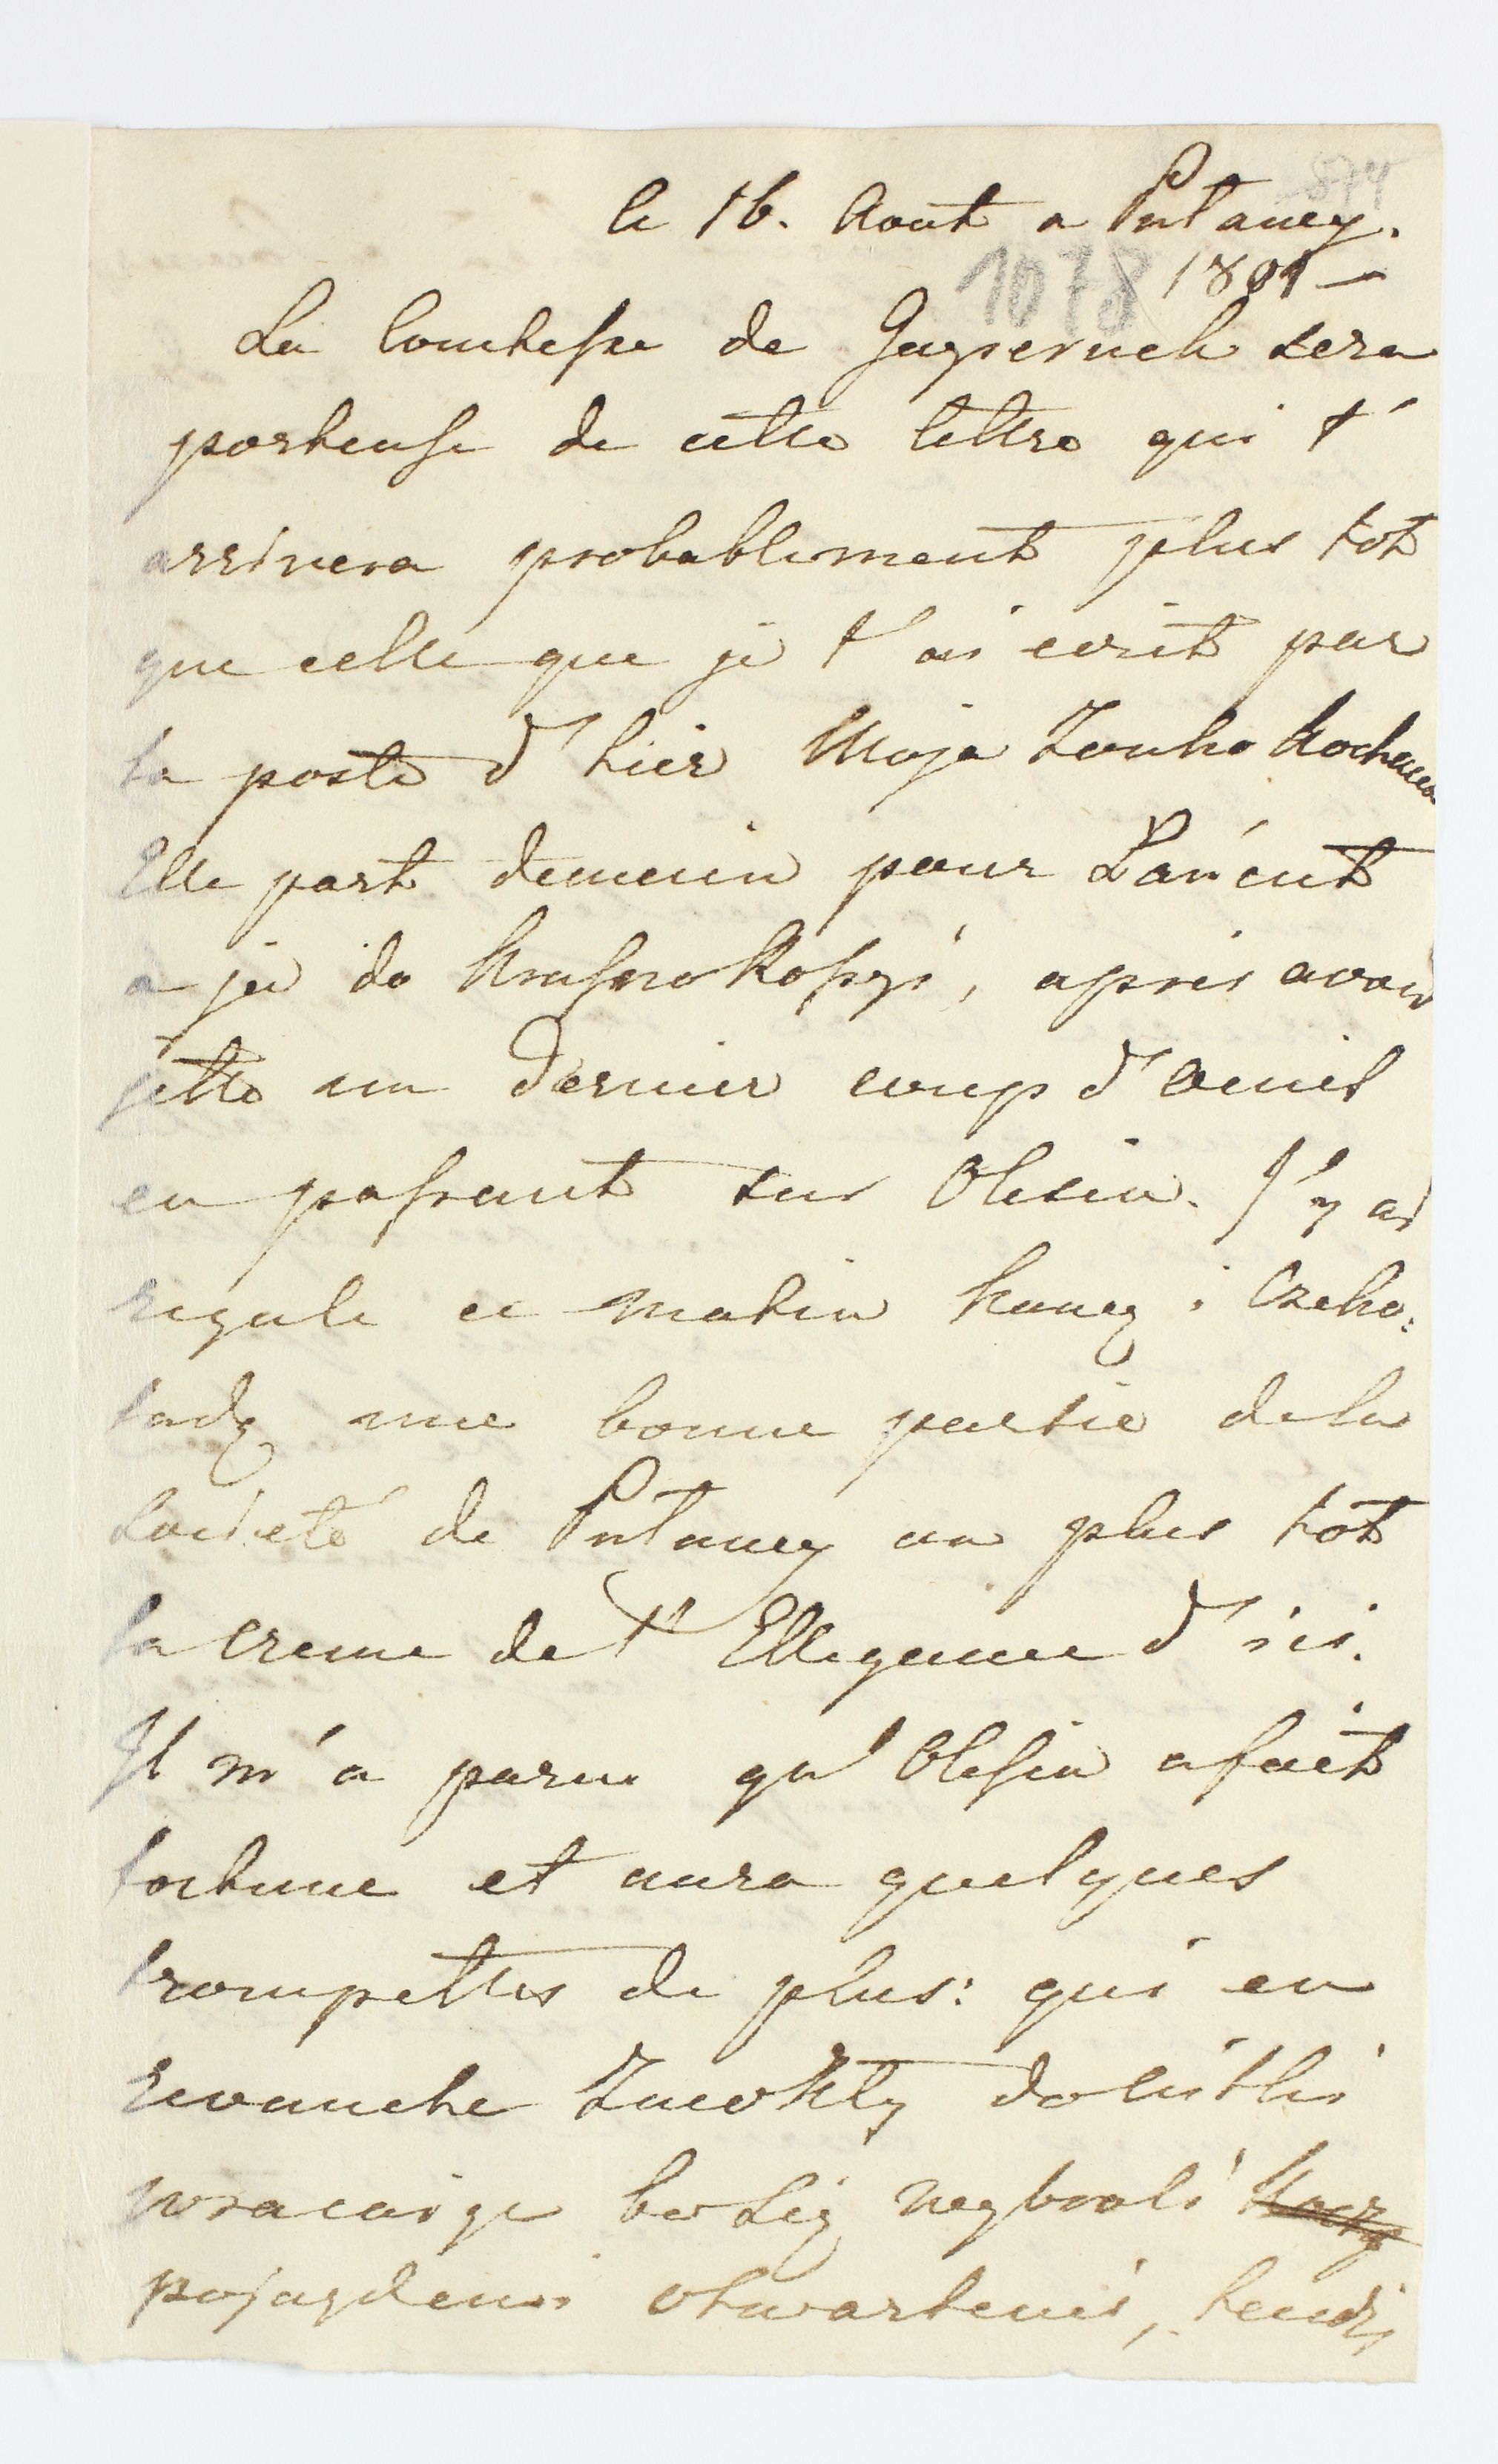 874
le 16. Aout a Pulawy.
1078 1801 —
La Comtesse de sera
porteuse de cette lettre qui t'
arrivera probablement plus tot
que celle que je t'ai ecrit par
la poste d'hier Moja Zonko Kochana
Elle part demain pour Lancut
a ja do , apres avoir
jetté un dernier coup d'oeuil
en passant sur Olesin. J'y ai
regalé ce matin Kawą i Czeko:
ladą une bonne partie de la
Societé de Pulawy ou plus tot
la Creme de l'Ellegance d'ici.
Il m'a paru qu'Olesin a fait
fortune et aura quelques
trompettes de plus: qui en
revanche Zwykly
wracaiąc bo się
pojazdem otwartemi,